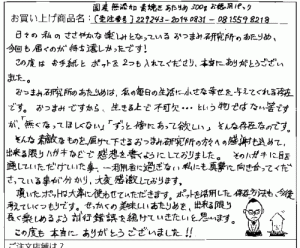 国産 無添加 素焼き あたりめ 200g お徳用パック
お買い上げ商品名:(受注番号)229243-20140831-0815598218
日々の私のささやかな楽しみとなっているおつまみ研究所のあたりめ、
今回も届くのが待ち遠しかったです!
この度はお手紙とポットを2つも入れてくださり、本当にありがとうござい
ました。
おつまみ研究所のあたりめは、私の毎日の生活に小さな幸せを与えてくれる存在
です。おつまみですから、生きる上で不可欠…という物ではない筈ですが、
「無くなってほしくない」「ずっと傍にあって欲しい」そんな存在なのです。
そんな素敵なものを届けて下さるおつまみ研究所の方々への感謝も込めて、
出来る限りハガキなどで感想を書くようにしておりました。そのハガキに目を
通していただけていた事、一利用者に過ぎない私にも真摯に向き合ってくだ
さっている事が分かり、大変感激しております。
頂いたポットは大事に使わせていただきます。ポットを活用した保存方法も、今後
考えていくつもりです。せっかくの美味しいあたりめを、出来る限り
長く楽しめるよう試行錯誤を続けていきたいと思います。
この度も本当にありがとうございました!!
ご注文店舗は?